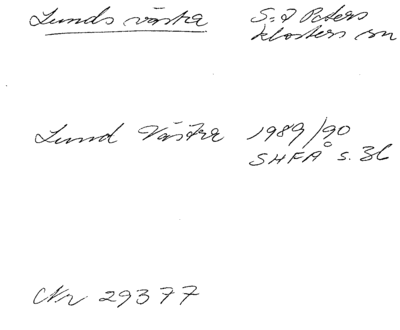 Lunds västra S:t Peters
klosters sn
Lund Västra 1989/90
SHFÅ s. 36
Nr 29377